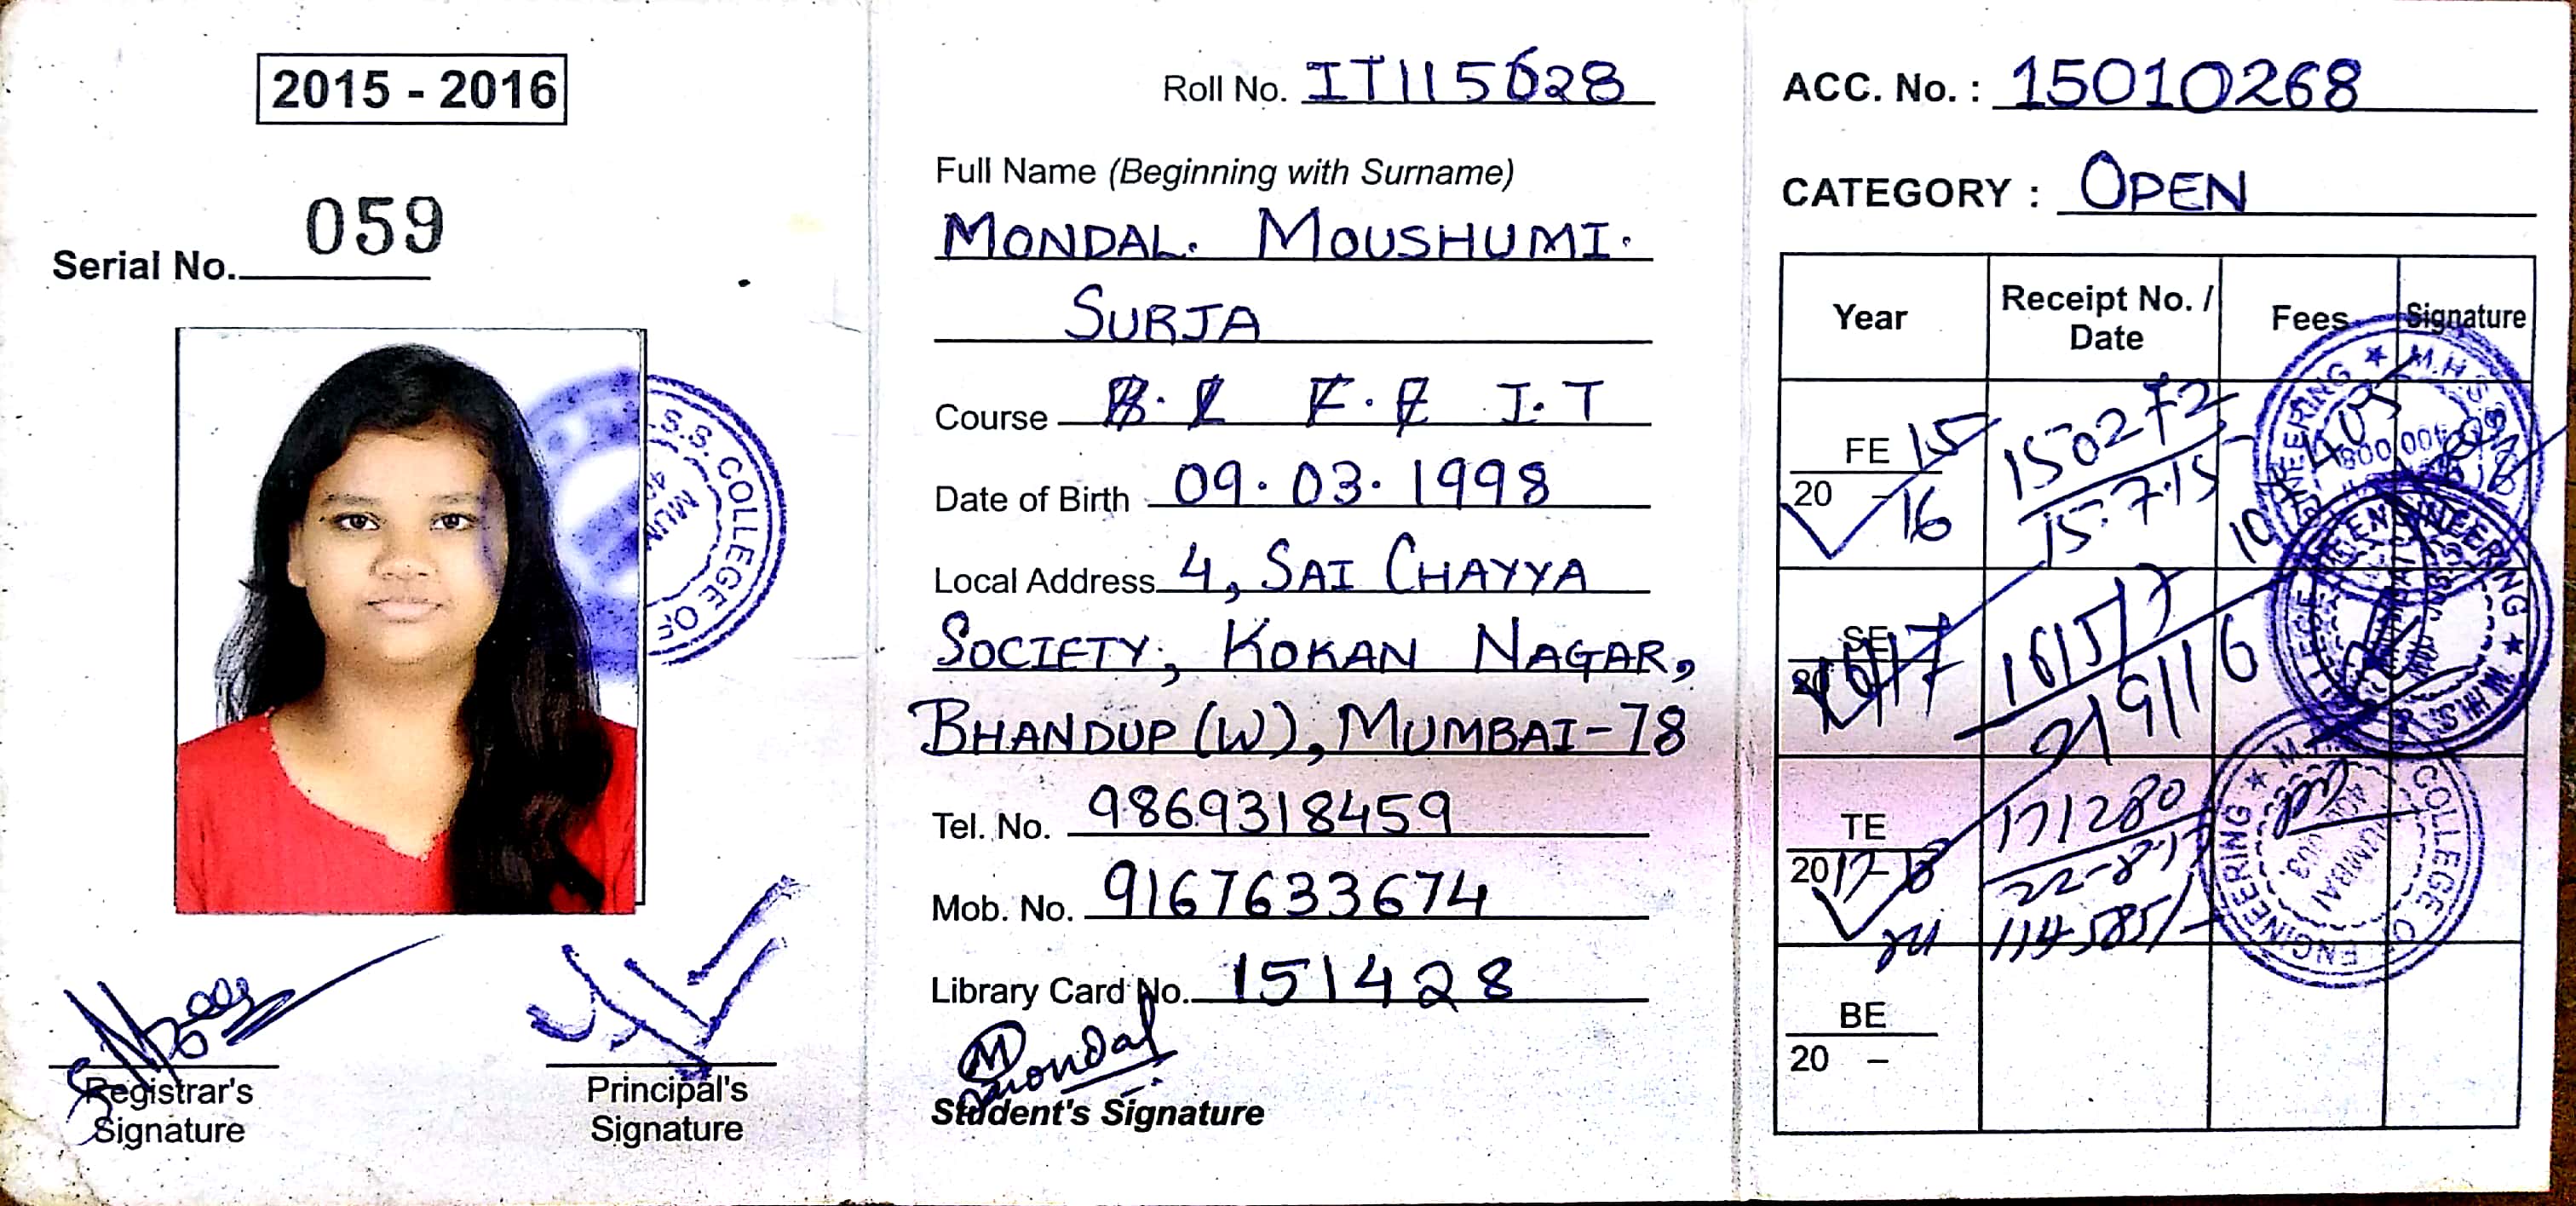 2015 - 2016
Serial No. 059
S.S. COLLEGE OF
MUM
Registrar's
Signature
Principal's
Signature
Roll No. IT115628
Full Name (Beginning with Surname)
MONDAL. MOUSHUMI.
SURJA
Course F.E I.T
Date of Birth 09.03.1998
Local Address 4, SAI CHAYYA
SOCIETY, KOKAN NAGAR,
BHANDUP (W), MUMBAI-78
Tel. No. 9869318459
Mob. No. 9167633674
Library Card No. 151428
Mondal
Student's Signature
ACC. No. : 15010268
CATEGORY : OPEN
Year Receipt No. / Date Fees Signature
FE 15
20 - 16
150272
15.7.15
SE
16/17
161517
2/9/16
TE
2017-18
171280
22-8-17
114585/-
COLLEGE OF ENGINEERING
MUMBAI
BE
20 –